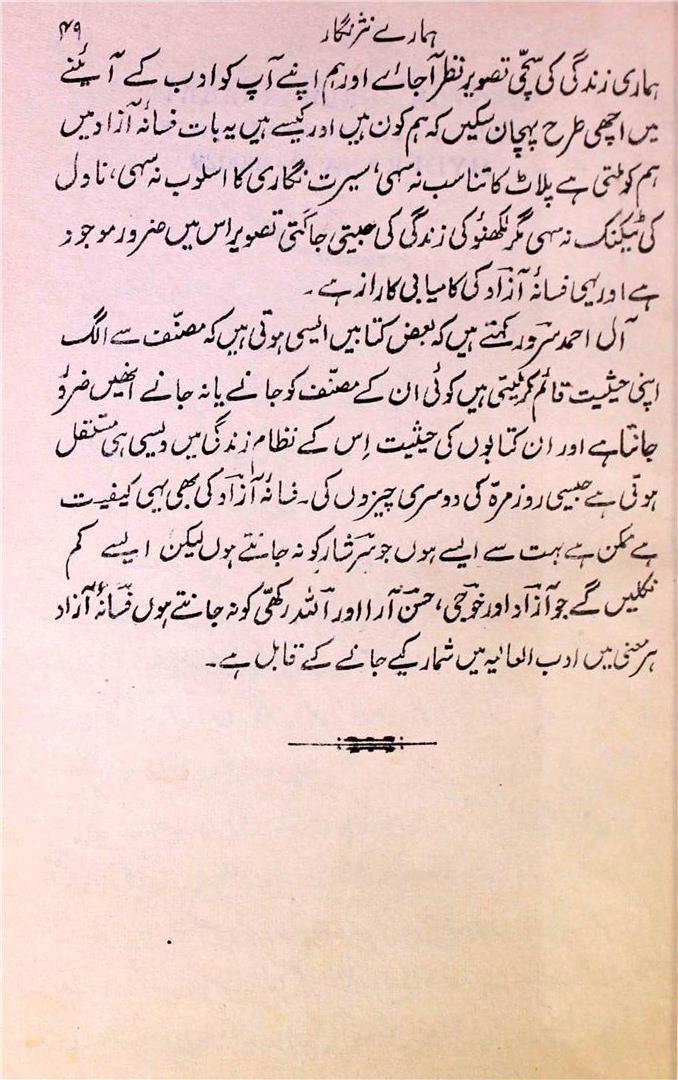 ہمارے نثر نگار
۴۹
ہماری زندگی کی سچّی تصویر نظر آجائے اور ہم اپنے آپ کو ادب کے آئنے
میں اچھی طرح پہچان سکیں کہ ہم کون ہیں اور کیسے ہیں یہ بات فسانۂ آزاد میں
ہم کو ملتی ہے پلاٹ کا تناسب نہ سہی، سیرت نگاری کا اسلوب نہ سہی، ناول
کی ٹیکنک نہ سہی مگر لکھنؤ کی زندگی کی جیتی جاگتی تصویر اس میں ضرور موجود
ہے اور یہی فسانۂ آزاد کی کامیابی کا راز ہے ۔
آل احمد سرور کہتے ہیں کہ بعض کتابیں ایسی ہوتی ہیں کہ مصنّف سے الگ
اپنی حیثیت قائم کر لیتی ہیں کوئی ان کے مصنّف کو جانے یا نہ جانے انھیں ضرور
جانتا ہے اور ان کتابوں کی حیثیت اِس کے نظامِ زندگی میں ویسی ہی مستقل
ہوتی ہے جیسی روزمرّہ کی دوسری چیزوں کی۔ فسانۂ آزاد کی بھی یہی کیفیت
ہے ممکن ہے بہت سے ایسے ہوں جو سرشار کو نہ جانتے ہوں لیکن ایسے کم
نکلیں گے جو آزاد اور خوجی، حسن آرا اور اللہ رکھّی کو نہ جانتے ہوں فسانۂ آزاد
ہر معنی میں ادب العالیہ میں شمار کیے جانے کے قابل ہے۔